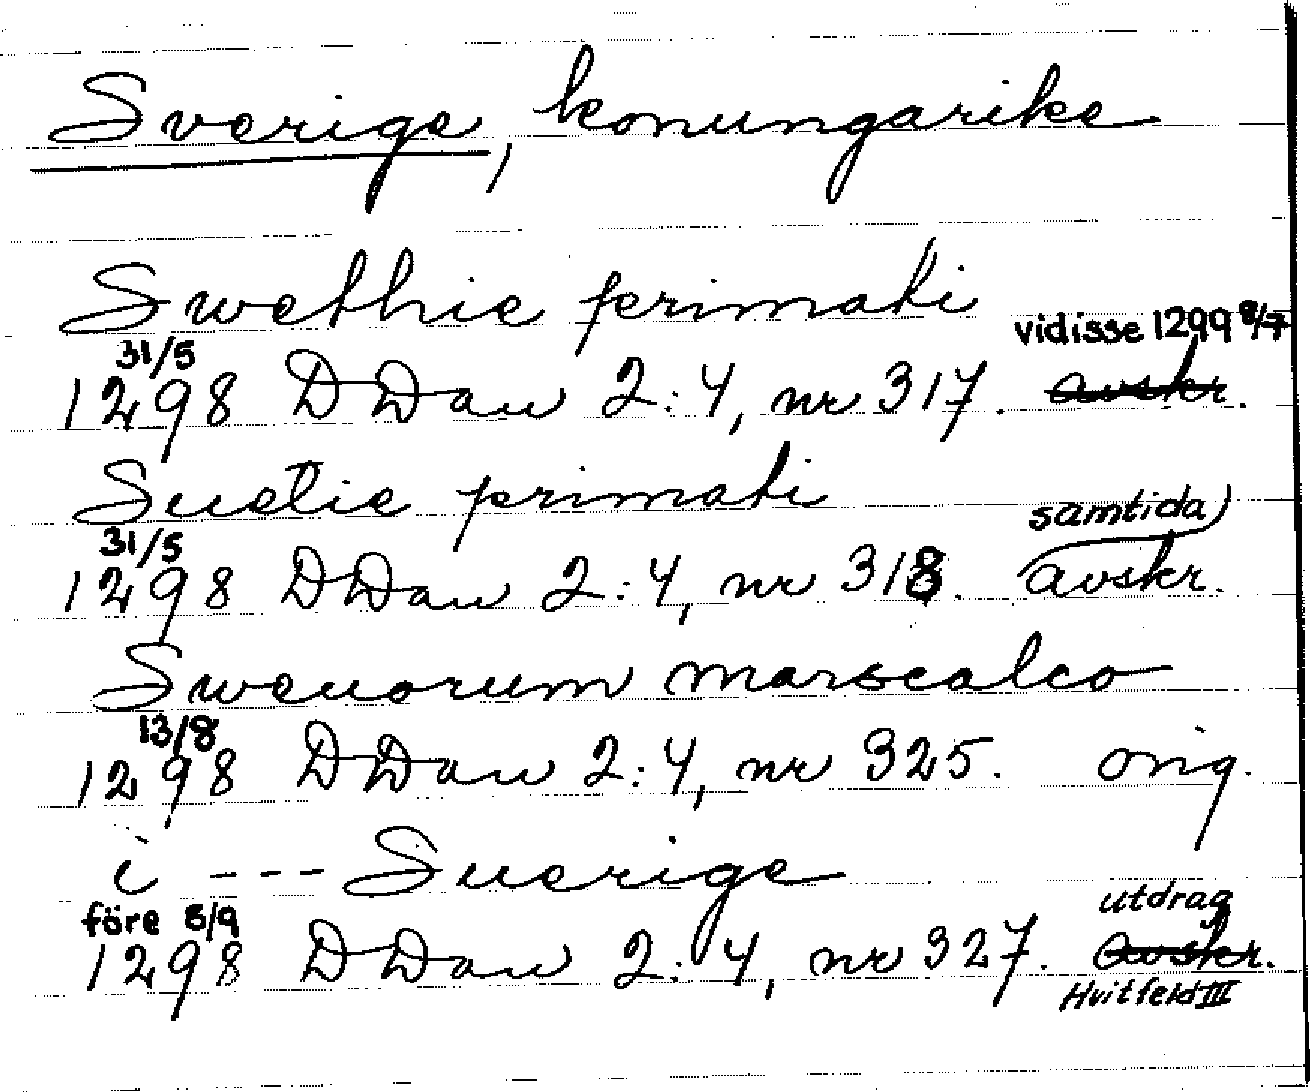 Sverige, konungarike
Swethie primati
vidisse 1299 8/7
31/5
1298 DDan 2:4, nr 317. avskr.
Suetie primati
samtida)
31/5
1298 DDan 2:4, nr 318. avskr.
Sweuorum marscalco
13/8
1298 DDan 2:4, nr 325. orig.
i --- Suerige
utdrag
före 8/9
1298 DDan 2:4, nr 327. avskr.
Hvitfeld III